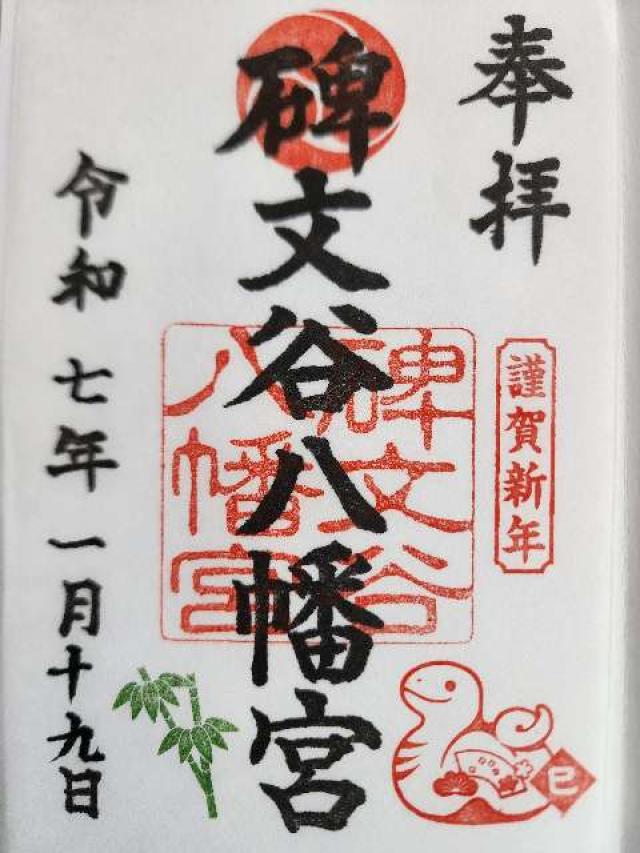 奉拝
謹賀新年
巳
碑文谷八幡宮
碑文谷
八幡宮
令和七年一月十九日